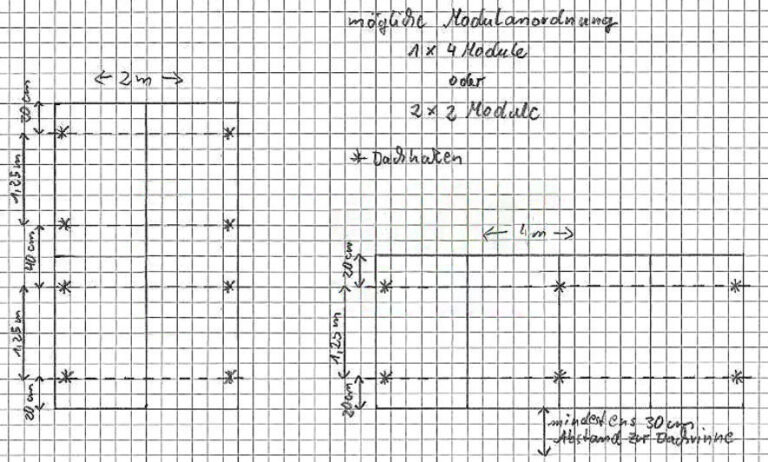 mögliche Modulanordnung
1 x 4 Module
oder
2 x 2 Module
* Dachhaken
← 2 m →
20 cm
1,25 m
40 cm
1,25 m
20 cm
← 4 m →
20 cm
1,25 m
20 cm
mindestens 30 cm
Abstand zur Dachrinne